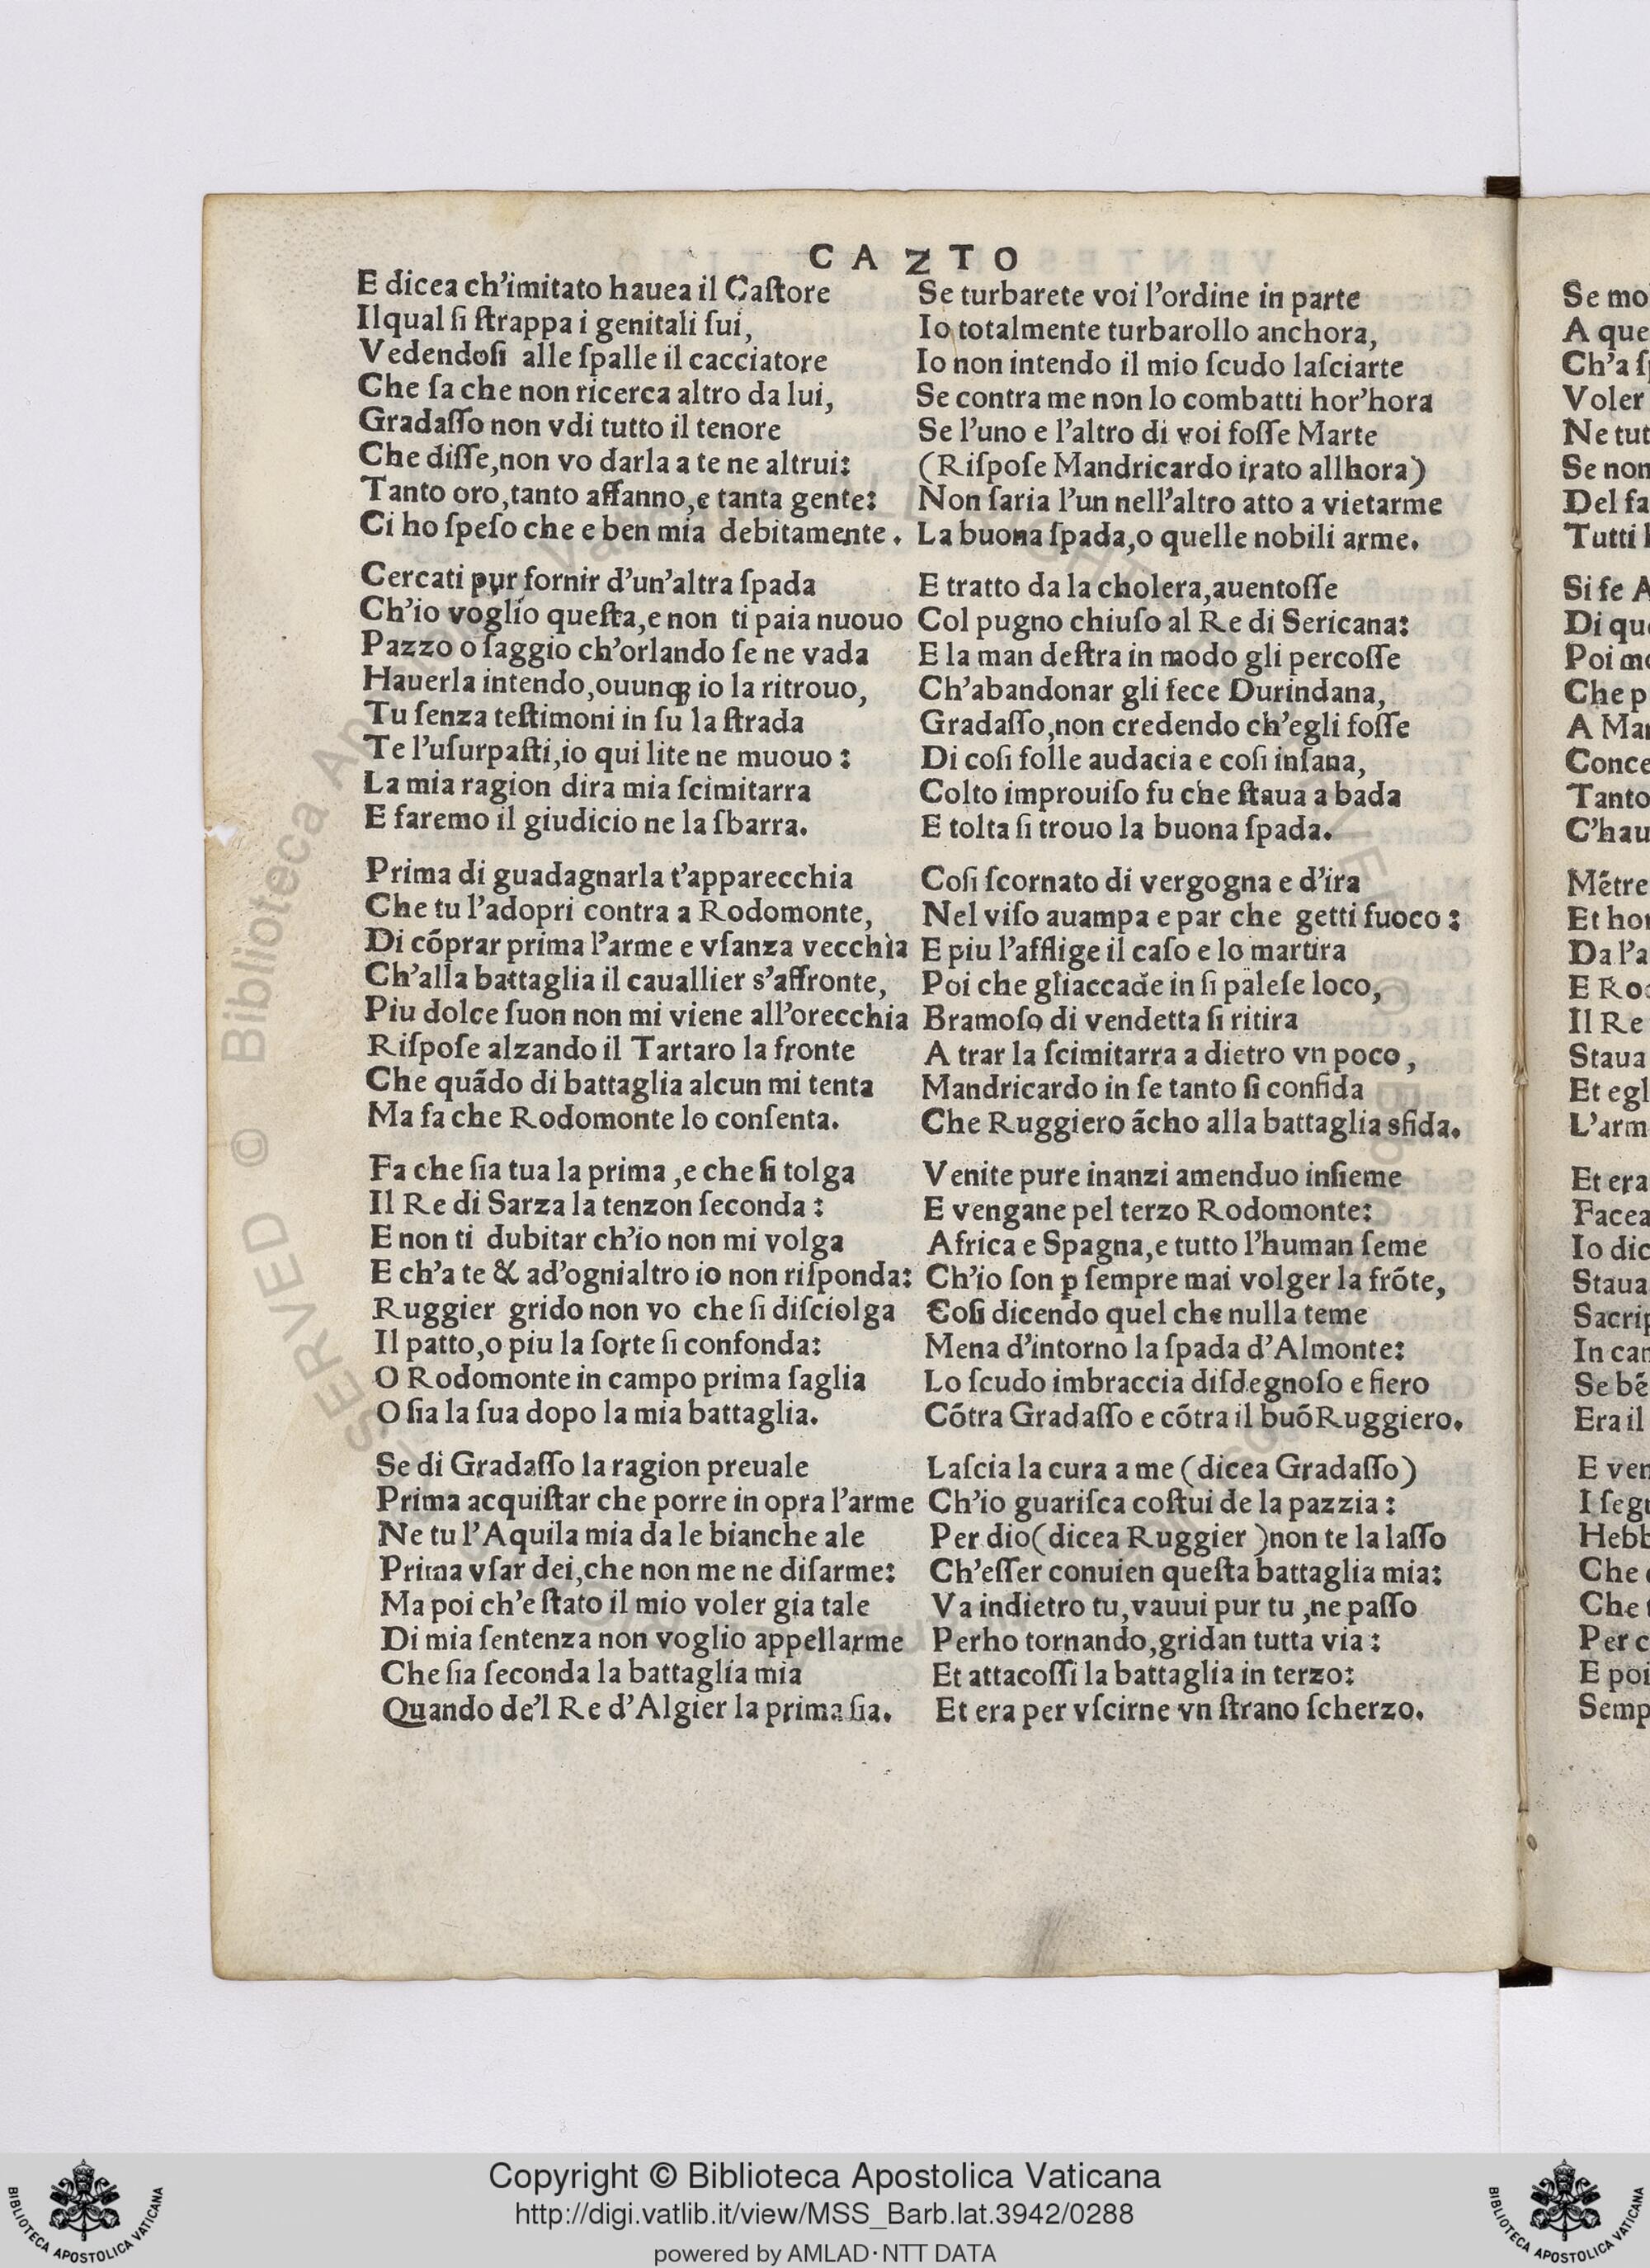 C A N T O
E dicea ch'imitato hauea il Caſtore
Ilqual ſi ſtrappa i genitali ſui,
Vedendoſi alle ſpalle il cacciatore
Che ſa che non ricerca altro da lui,
Gradaſſo non vdi tutto il tenore
Che diſſe,non vo darla a te ne altrui:
Tanto oro,tanto affanno,e tanta gente:
Ci ho ſpeſo che e ben mia debitamente.
Cercati pur fornir d'un'altra ſpada
Ch'io voglio queſta,e non ti paia nuouo
Pazzo o ſaggio ch'orlando ſe ne vada
Hauerla intendo,ouunqꝫ io la ritrouo,
Tu ſenza teſtimoni in ſu la ſtrada
Te l'uſurpaſti,io qui lite ne muouo:
La mia ragion dira mia ſcimitarra
E faremo il giudicio ne la ſbarra.
Prima di guadagnarla t'apparecchia
Che tu l'adopri contra a Rodomonte,
Di cõprar prima l'arme e vſanza vecchia
Ch'alla battaglia il cauallier s'affronte,
Piu dolce ſuon non mi viene all'orecchia
Riſpoſe alzando il Tartaro la fronte
Che quãdo di battaglia alcun mi tenta
Ma fa che Rodomonte lo conſenta.
Fa che ſia tua la prima,e che ſi tolga
Il Re di Sarza la tenzon ſeconda:
E non ti dubitar ch'io non mi volga
E ch'a te & ad'ognialtro io non riſponda:
Ruggier grido non vo che ſi diſciolga
Il patto,o piu la ſorte ſi confonda:
O Rodomonte in campo prima ſaglia
O ſia la ſua dopo la mia battaglia.
Se di Gradaſſo la ragion preuale
Prima acquiſtar che porre in opra l'arme
Ne tu l'Aquila mia da le bianche ale
Prima vſar dei,che non me ne diſarme:
Ma poi ch'e ſtato il mio voler gia tale
Di mia ſentenza non voglio appellarme
Che ſia ſeconda la battaglia mia
Quando de'l Re d'Algier la prima ſia.
Se turbarete voi l'ordine in parte
Io totalmente turbarollo anchora,
Io non intendo il mio ſcudo laſciarte
Se contra me non lo combatti hor'hora
Se l'uno e l'altro di voi foſſe Marte
(Riſpoſe Mandricardo irato allhora)
Non ſaria l'un nell'altro atto a vietarme
La buona ſpada,o quelle nobili arme.
E tratto da la cholera,auentoſſe
Col pugno chiuſo al Re di Sericana:
E la man deſtra in modo gli percoſſe
Ch'abandonar gli fece Durindana,
Gradaſſo,non credendo ch'egli foſſe
Di coſi folle audacia e coſi inſana,
Colto improuiſo fu che ſtaua a bada
E tolta ſi trouo la buona ſpada.
Coſi ſcornato di vergogna e d'ira
Nel viſo auampa e par che getti fuoco:
E piu l'afflige il caſo e lo martira
Poi che gliaccade in ſi paleſe loco,
Bramoſo di vendetta ſi ritira
A trar la ſcimitarra a dietro vn poco,
Mandricardo in ſe tanto ſi confida
Che Ruggiero ãcho alla battaglia sfida.
Venite pure inanzi amenduo inſieme
E vengane pel terzo Rodomonte:
Africa e Spagna,e tutto l'human ſeme
Ch'io ſon ꝑ ſempre mai volger la frõte,
Coſi dicendo quel che nulla teme
Mena d'intorno la ſpada d'Almonte:
Lo ſcudo imbraccia diſdegnoſo e fiero
Cõtra Gradaſſo e cõtra il buõ Ruggiero.
Laſcia la cura a me (dicea Gradaſſo)
Ch'io guariſca coſtui de la pazzia:
Per dio(dicea Ruggier )non te la laſſo
Ch'eſſer conuien queſta battaglia mia:
Va indietro tu,vauui pur tu ,ne paſſo
Perho tornando,gridan tutta via:
Et attacoſſi la battaglia in terzo:
Et era per vſcirne vn ſtrano ſcherzo.
Se mo
A que
Ch'a ſp
Voler
Ne tut
Se non
Del fa
Tutti
Si fe A
Di qu
Poi mo
Che p
A Mar
Conce
Tanto
C'hau
Mẽtre
Et hor
Da l'a
E Ro
Il Re
Staua
Et egl
L'arm
Et era
Facea
Io dic
Staua
Sacrip
In car
Se bẽ
Era il
E ven
I ſegu
Hebb
Che
Che
Per c
E poi
Semp
Copyright © Biblioteca Apostolica Vaticana
http://digi.vatlib.it/view/MSS_Barb.lat.3942/0288
powered by AMLAD·NTT DATA
BIBLIOTECA APOSTOLICA VATICANA
BIBLIOTECA APOSTOLICA VATICANA